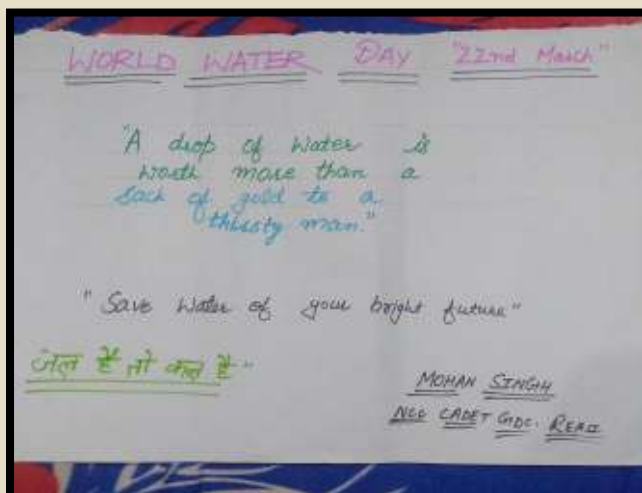 WORLD WATER DAY "22nd March"
"A drop of water is
worth more than a
sack of gold to a
thirsty man."
"Save Water of your bright future"
जल है तो कल है"
MOHAN SINGH
NCC CADET GDC.